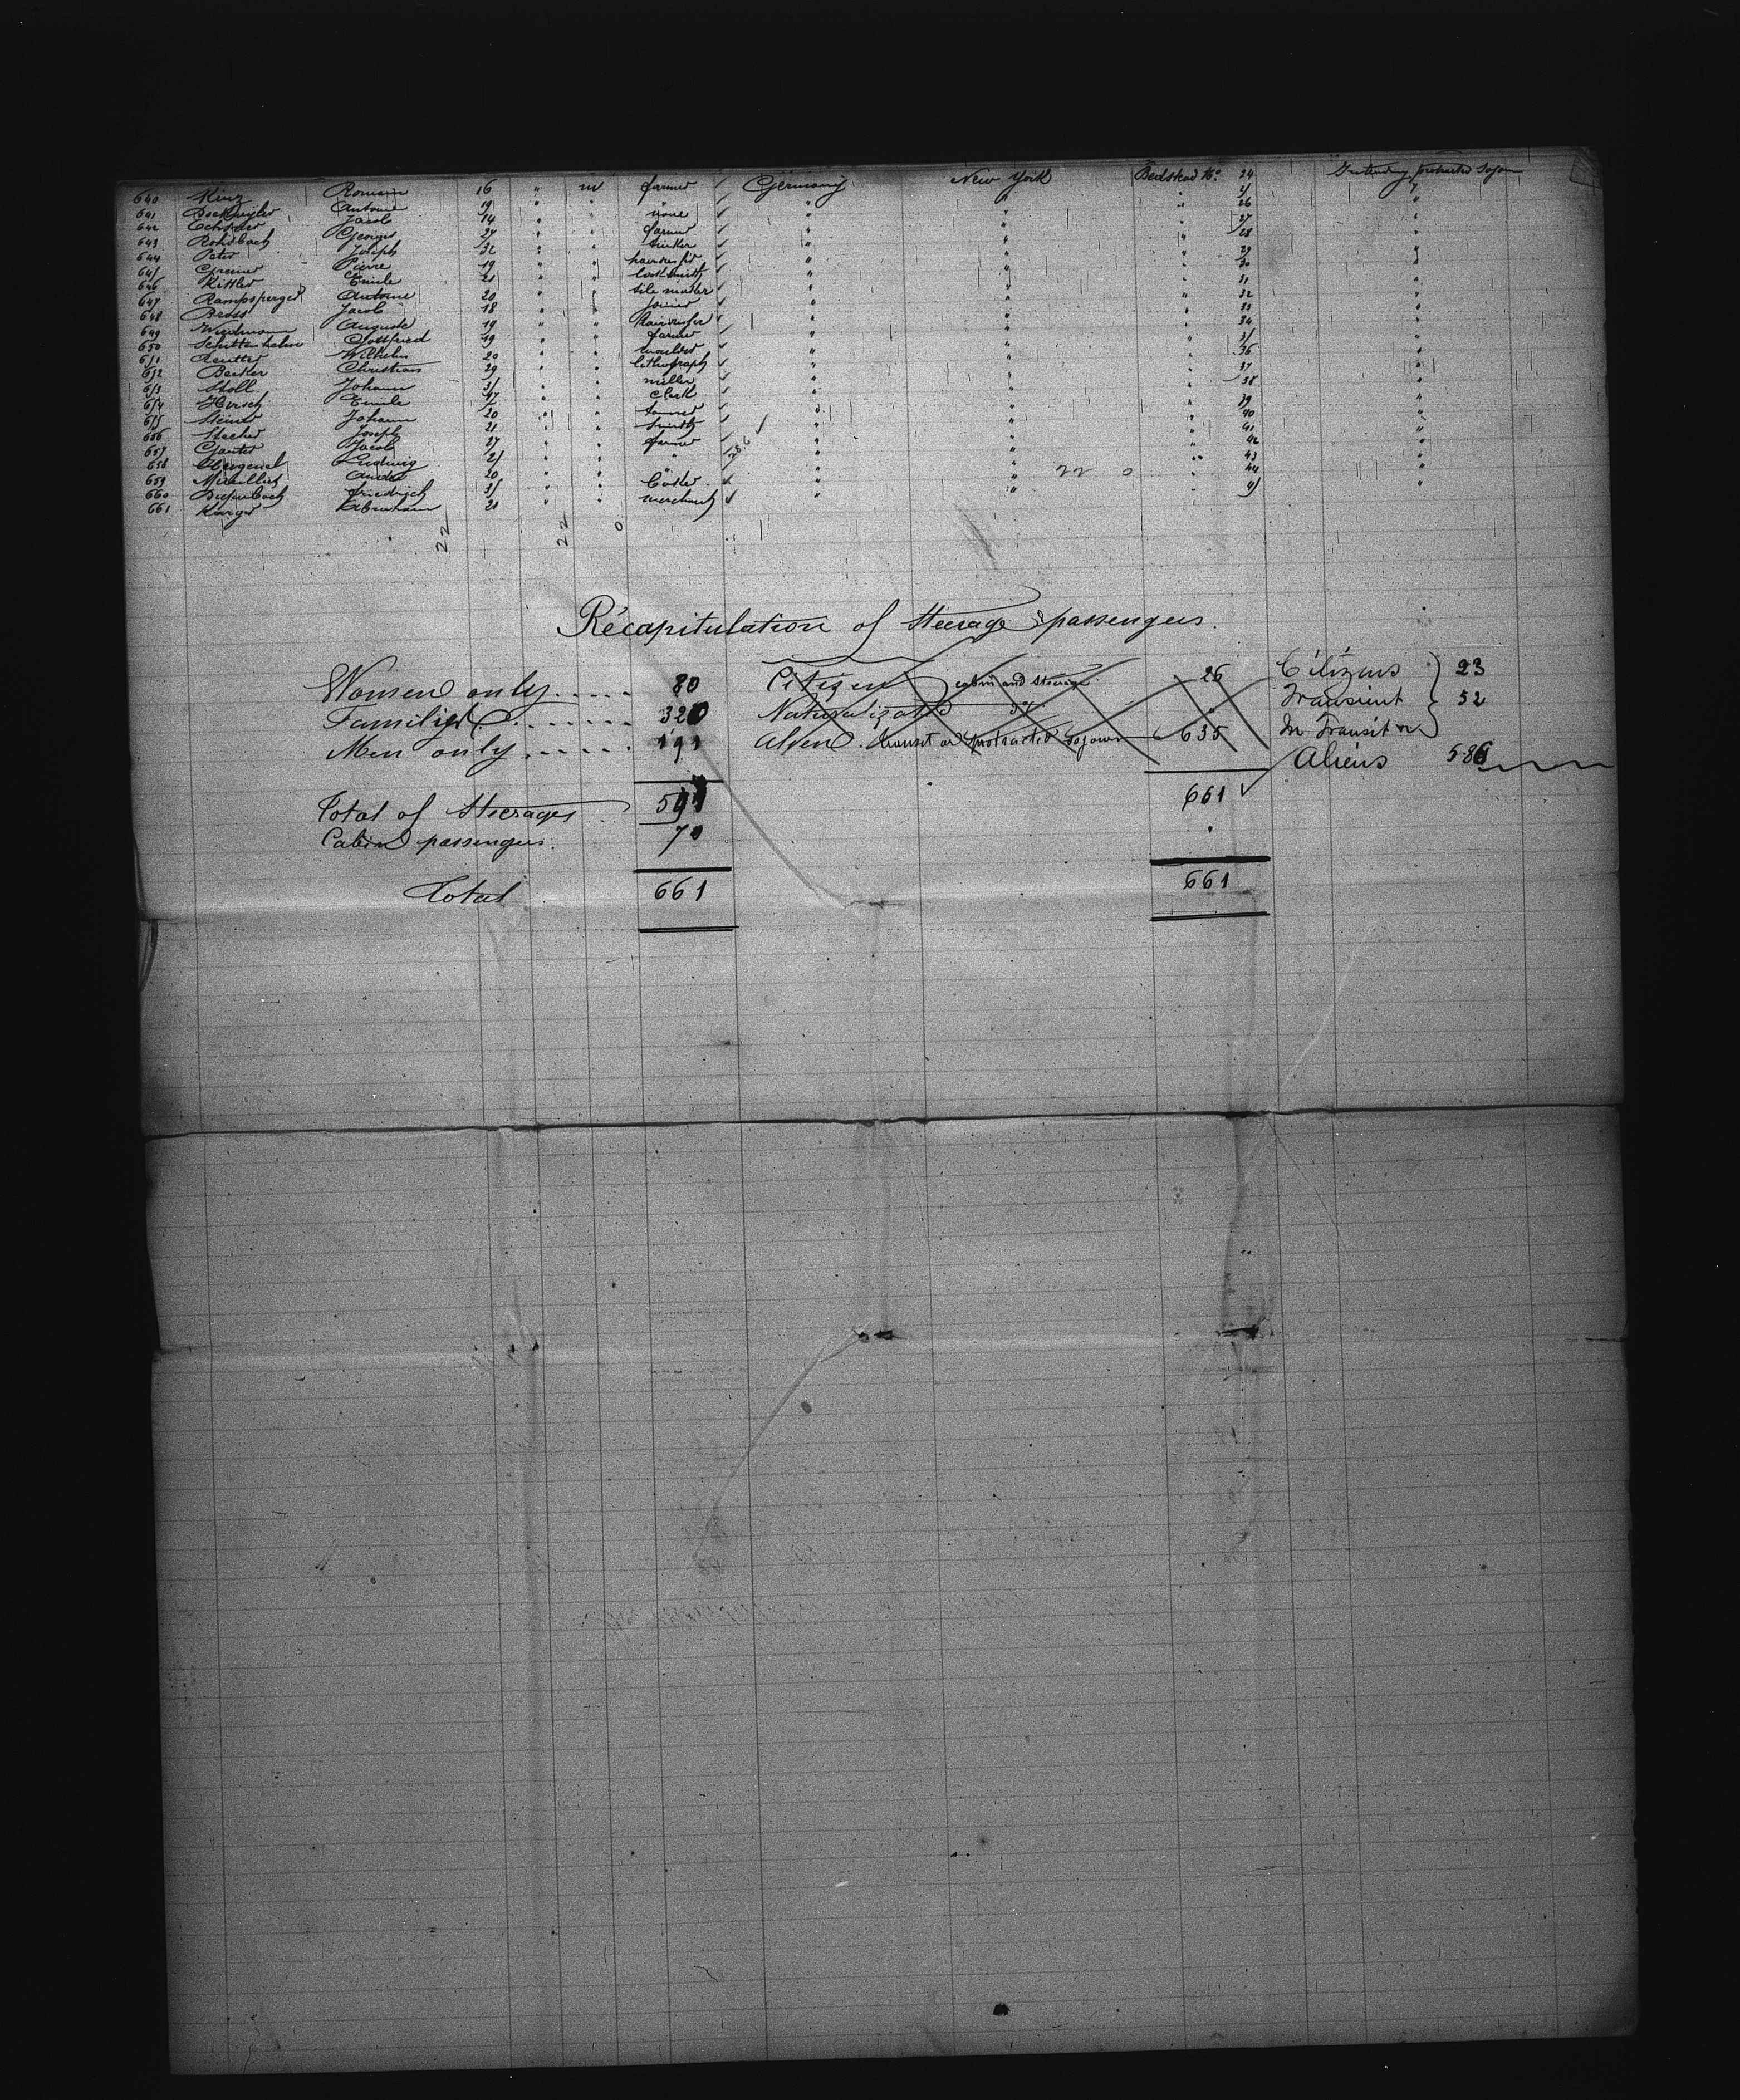 640 Kinz Romain 16 " m farmer ✓ Germany New York Bedstead No. 24 Intending protracted Sojourn
641 Antoine 19 " " " ✓ " " " 25 "
642 Jacob 14 " " none ✓ " " " 26 "
643 Rohrbach Georges 27 " " farmer ✓ " " " 27 "
644 Peter Joseph 32 " " ✓ " " " 28 "
645 Greiner Pierre 19 " " hairdresser ✓ " " " 29 "
646 Kittler Emile 21 " " locksmith ✓ " " " 30 "
647 Rampsperger Antoine 20 " " tile maker ✓ " " " 31 "
648 Bross Jacob 18 " " joiner ✓ " " " 32 "
649 Wiedmann Auguste 19 " " hairdresser ✓ " " " 33 "
650 Schuttenhelm Gottfried 19 " " farmer ✓ " " " 34 "
651 Reutter Wilhelm 20 " " moulder ✓ " " " 35 "
652 Becker Christian 29 " " lithograph ✓ " " " 36 "
653 Stoll Johann 35 " " miller ✓ " " " 37 "
654 Hirsch Emile 17 " " clerk ✓ " " " 38 "
655 Steiner Johann 20 " " tanner ✓ " " " 39 "
656 Stecher Joseph 21 " " smith ✓ " " " 40 "
657 Ganter Jacob 27 " " farmer ✓ " " " 41 "
658 Ludwig 25 " " " " " " 42 "
659 André 20 " " " " " 43 "
660 Diefenbach Friedrich 35 " " ✓ " " 22 0 " 44 "
661 Karger Abraham 21 " " merchant ✓ " " 45 "
22 22 0
Récapitulation of Steerage passengers.
Women only..... 80 Citizen cabin and steerage 26 Citizens 23
Families...... 320 Naturalizated do Transient 52
Men only..... 191 Alien. transit or protracted sojourn 635 In Transit
Aliens 586
Total of Steerages 591 661 ✓
Cabin passengers. 70
Total 661 661